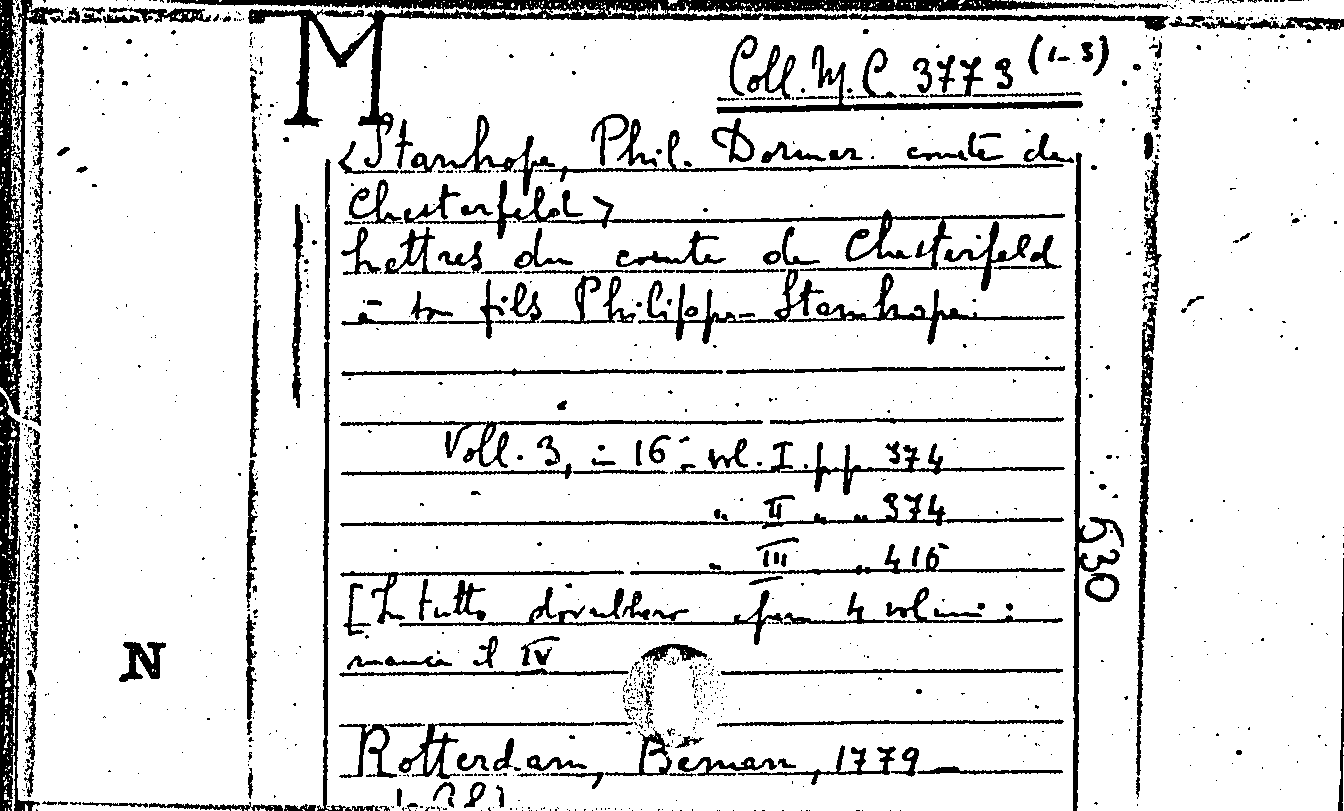 M
Coll. M. C. 3773 (1-3)
<Stanhope, Phil. Dormer. comte de
Chesterfeld>
Lettres du comte de Chesterfeld
à son fils Philippe Stanhope.
Voll. 3, in 16° vol. I. pp. 374
" II " " 374
" III " 416
630
[In tutto dovrebbero essere 4 volumi:
manca il IV
N
Rotterdam, Beman, 1779